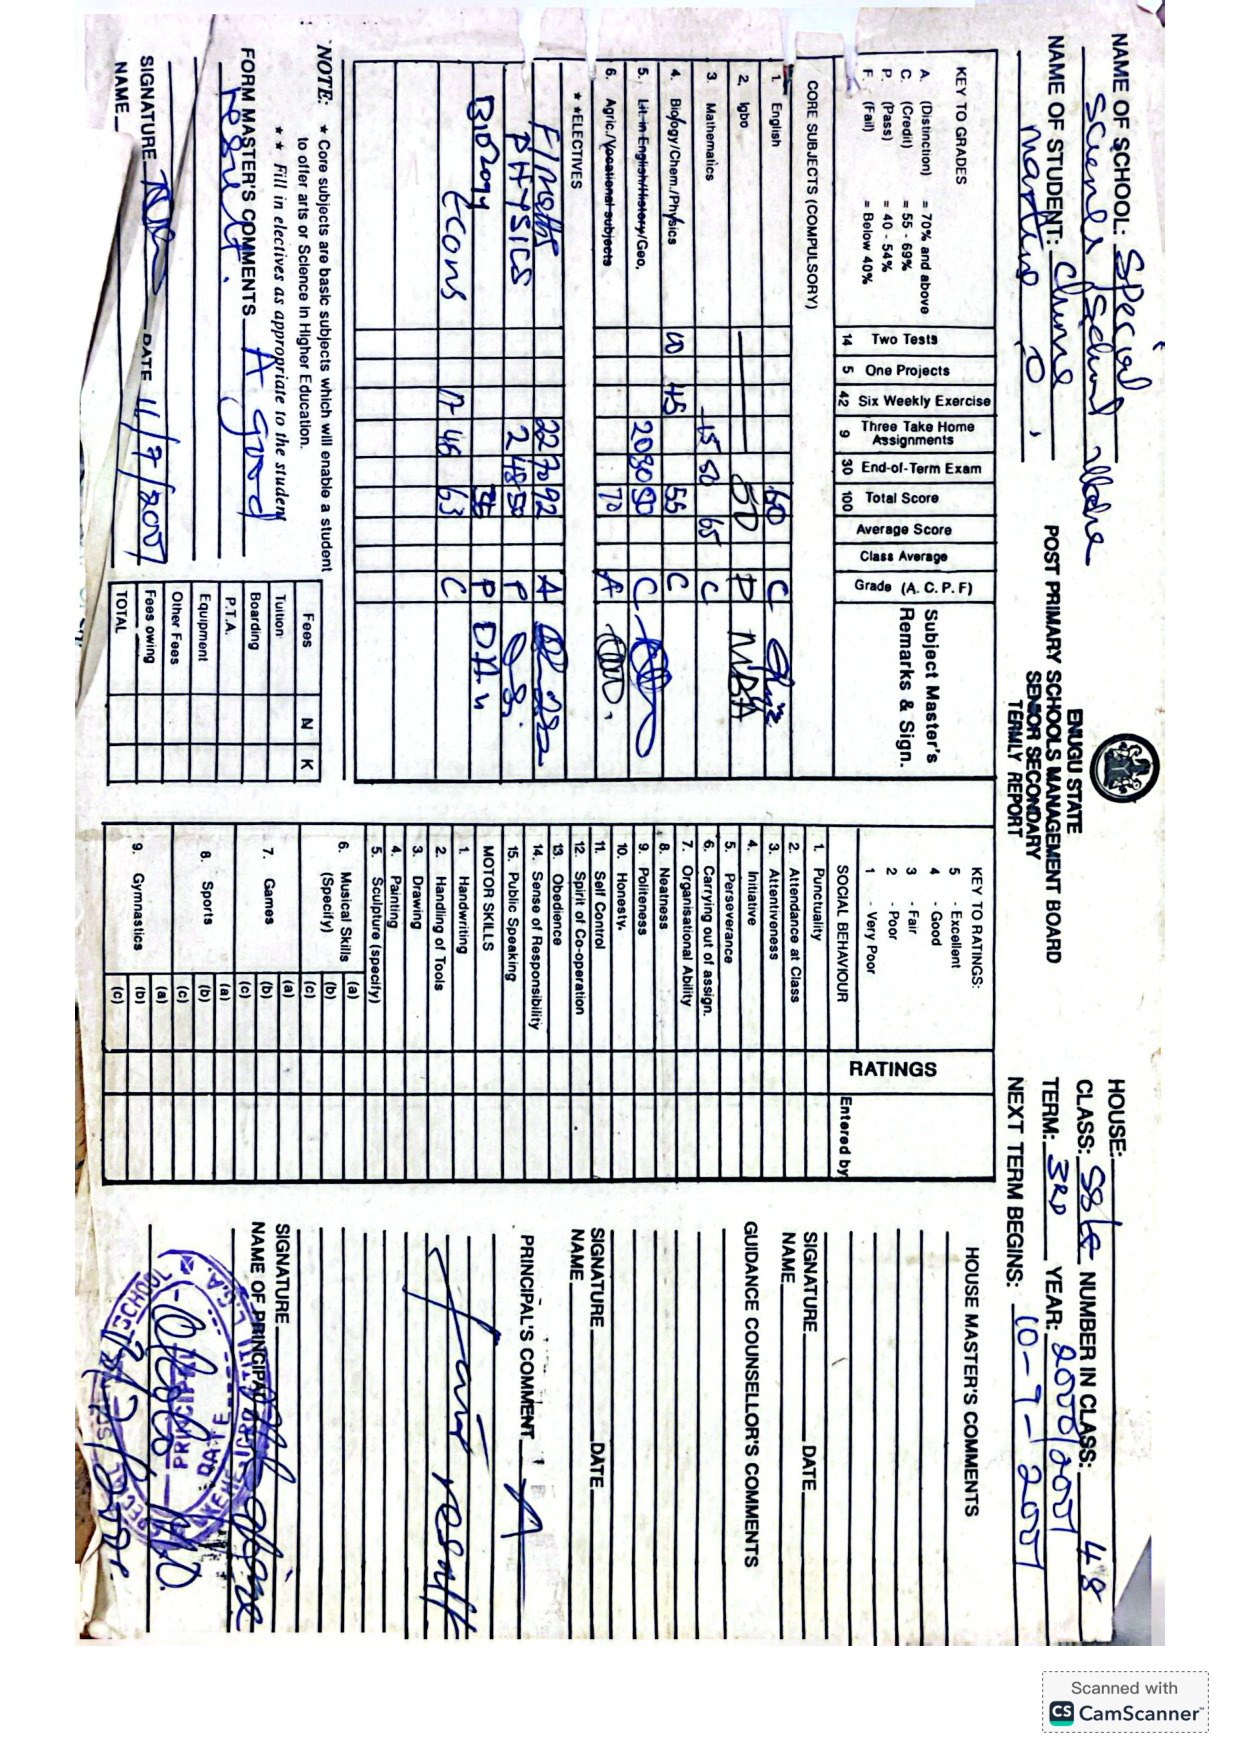 NAME OF SCHOOL: Special
Science School
NAME OF STUDENT: Chime
Martins O.
ENUGU STATE
POST PRIMARY SCHOOLS MANAGEMENT BOARD
SENIOR SECONDARY
TERMLY REPORT
HOUSE:
CLASS: NUMBER IN CLASS: 48
TERM: 3RD YEAR: 2000/2001
NEXT TERM BEGINS: 10-9-2001
KEY TO GRADES
A. (Distinction) = 70% and above
C. (Credit) = 55 - 69%
P. (Pass) = 40 - 54%
F. (Fail) = Below 40%
14 Two Tests
5 One Projects
42 Six Weekly Exercise
9 Three Take Home Assignments
30 End-of-Term Exam
100 Total Score
Average Score
Class Average
Grade (A. C. P. F)
Subject Master's Remarks & Sign.
CORE SUBJECTS (COMPULSORY)
1. English 60 C
2. Igbo 50 P
3. Mathematics 15 50 65 C
4. Biology/Chem./Physics 10 45 55 C
5. Lit. in English/History/Geo. C
6. Agric./Vocational subjects 70 A
* *ELECTIVES
F/maths 22 70 92 A
PHYSICS 2 48 50 P
Biology P
Econs 17 46 63 C
NOTE: * Core subjects are basic subjects which will enable a student
to offer arts or Science in Higher Education.
* * Fill in electives as appropriate to the student
FORM MASTER'S COMMENTS A good
result.
SIGNATURE DATE 11/7/2001
NAME
Fees N K
Tuition
Boarding
P.T.A.
Equipment
Other Fees
Fees owing
TOTAL
KEY TO RATINGS:
5 - Excellent
4 - Good
3 - Fair
2 - Poor
1 - Very Poor
RATINGS
Entered by
SOCIAL BEHAVIOUR
1. Punctuality
2. Attendance at Class
3. Attentiveness
4. Initiative
5. Perseverance
6. Carrying out of assign.
7. Organisational Ability
8. Neatness
9. Politeness
10. Honesty.
11. Self Control
12. Spirit of Co-operation
13. Obedience
14. Sense of Responsibility
15. Public Speaking
MOTOR SKILLS
1. Handwriting
2. Handling of Tools
3. Drawing
4. Painting
5. Sculpture (specify)
6. Musical Skills (Specify) (a)
(b)
(c)
7. Games (a)
(b)
(c)
8. Sports (a)
(b)
(c)
9. Gymnastics (a)
(b)
(c)
HOUSE MASTER'S COMMENTS
SIGNATURE DATE
NAME
GUIDANCE COUNSELLOR'S COMMENTS
SIGNATURE DATE
NAME
PRINCIPAL'S COMMENT A
fair result
SIGNATURE
NAME OF PRINCIPAL
PRINCIPAL
DATE
Scanned with
CS CamScanner